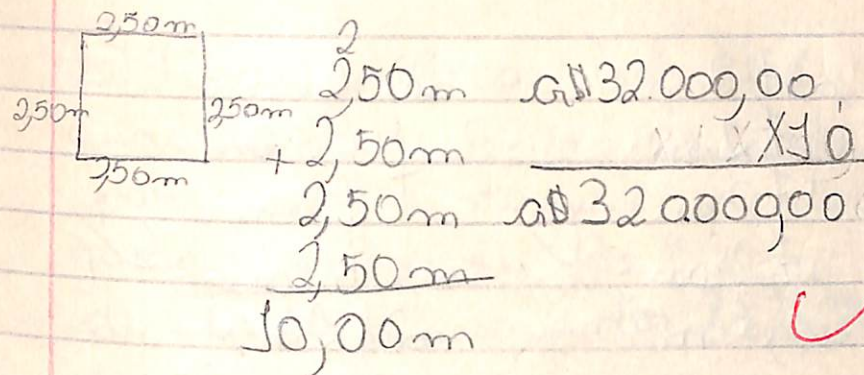 2,50m
2,50m 2,50m
2,50m
2
2,50m
+ 2,50m
2,50m
2,50m
10,00m
32.000,00
X10
32 0000,00